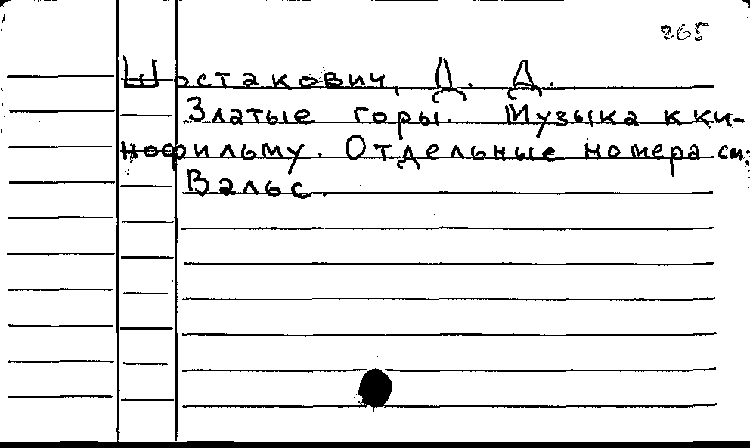 265
Шостакович, Д. Д.
Златые горы. Музыка к ки-
нофильму. Отдельные номера см:
Вальс.